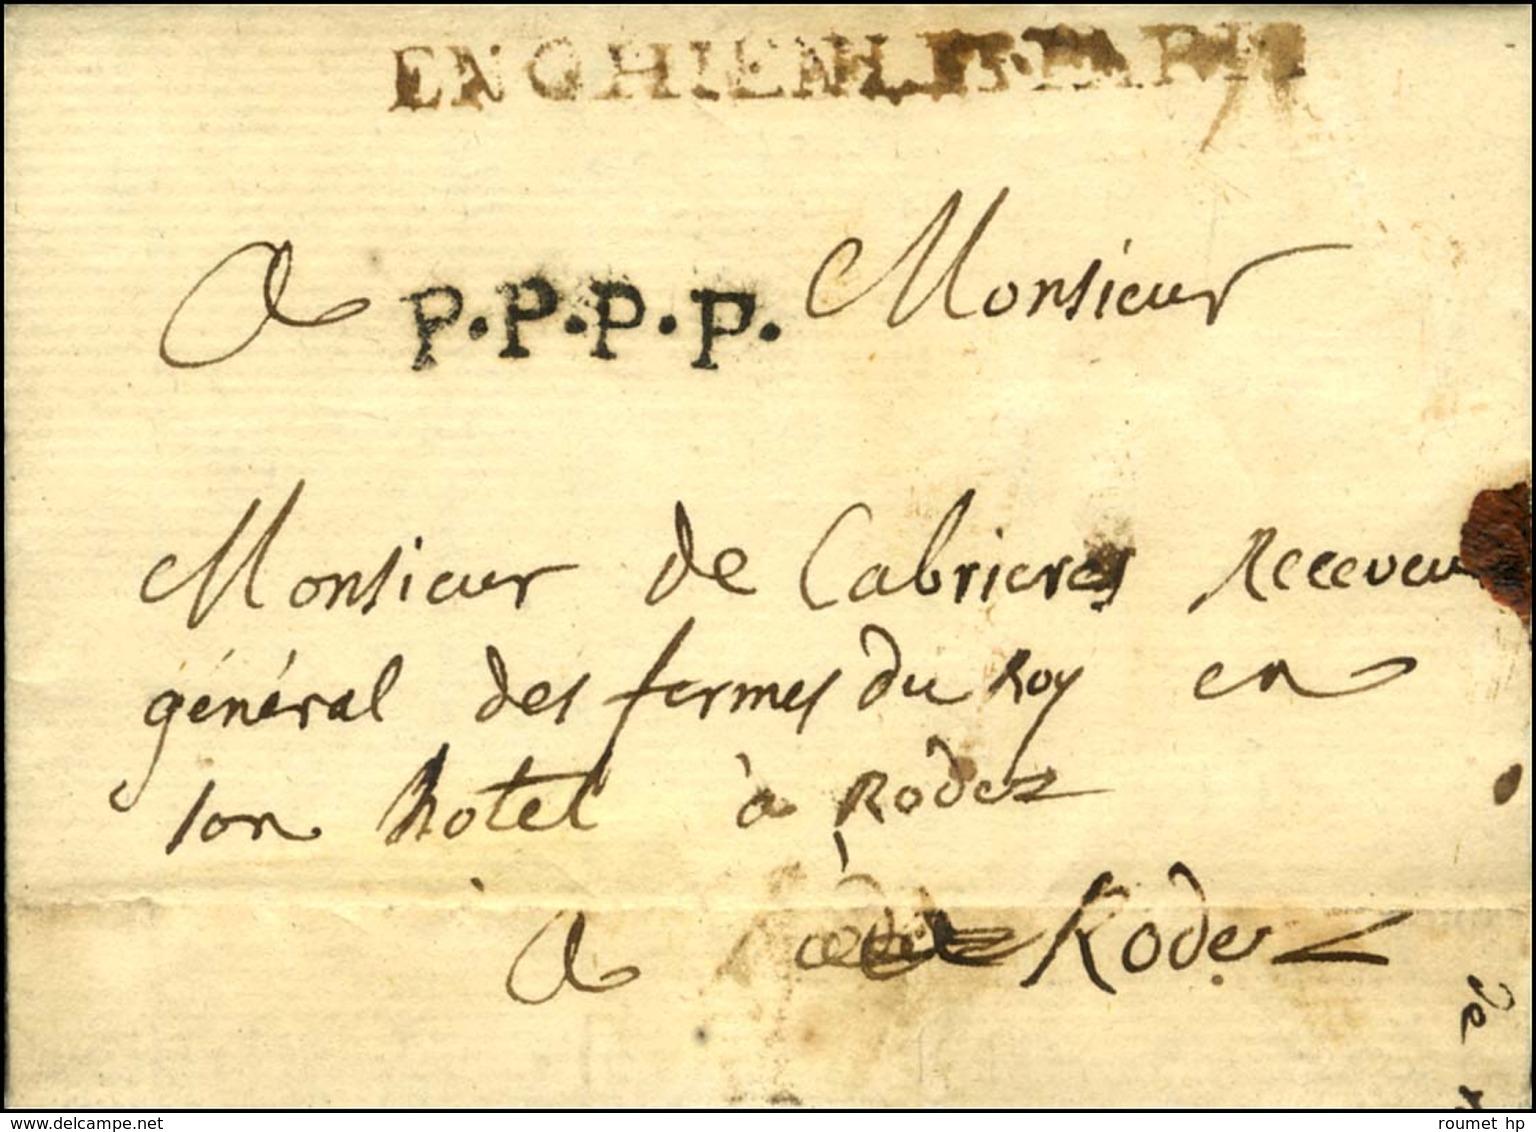 ENGHIEN LES PARIS
a P.P.P.P. Monsieur
Monsieur de Cabrieres Receveur
général des fermes du Roy en
son hotel à Rodez
a Rodez
de
roumet hp